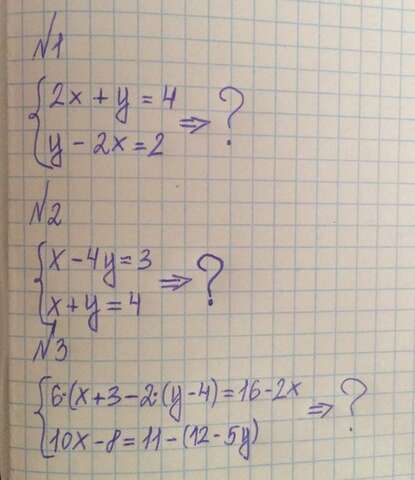 №1
2x + y = 4
y - 2x = 2 ⇒ ?
№2
x - 4y = 3
x + y = 4 ⇒ ?
№3
6·(x + 3 - 2·(y - 4) = 16 - 2x
10x - 8 = 11 - (12 - 5y) ⇒ ?